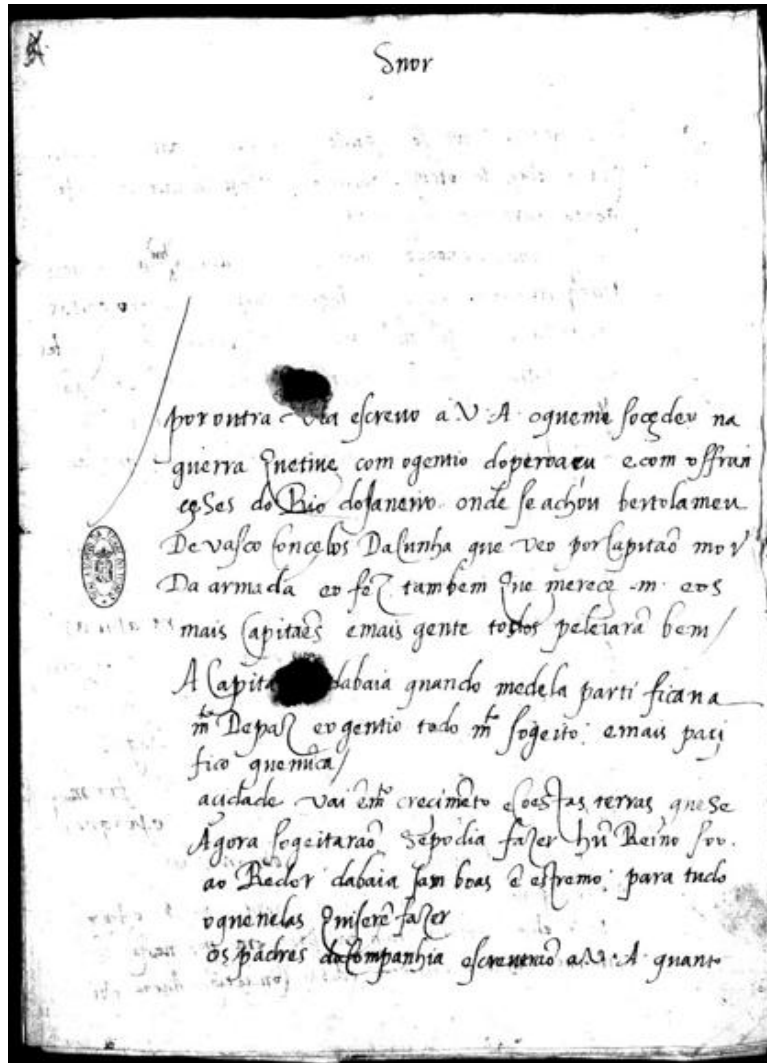 Snor
por outra via escrevo a V. A. o que me soçedeu na
guerra q̃ netive com o gentio do peroaçu e com os fran
çeses do Rio do Janeiro. onde se achou bertolameu
De vasco Conçelos Da Cunha que veo por Capitaõ mor
Da armada e o fez tambem que mereçe m. e os
mais Capitaẽs e mais gente todos peleiaraõ bem /
A Capita dabaia quando me dela parti ficava
m.to De paz e o gentio todo m.to sogeito. e mais paçi
fico que nũca /
a cidade vai em m.to creçimẽto e Co estas terras que se
Agora sogeitaraõ Se podia fazer hũ Reino soo.
ao Redor dabaia sam boas ẽ estremo para tudo
o que nelas quiserẽ fazer
os padres da Companhia escreveraõ a V. A. quanto